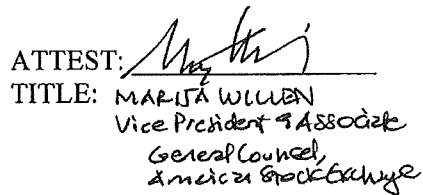 ATTEST:
TITLE: MARIJA WILLEN
Vice President & Associate
General Counsel,
American Stock Exchange